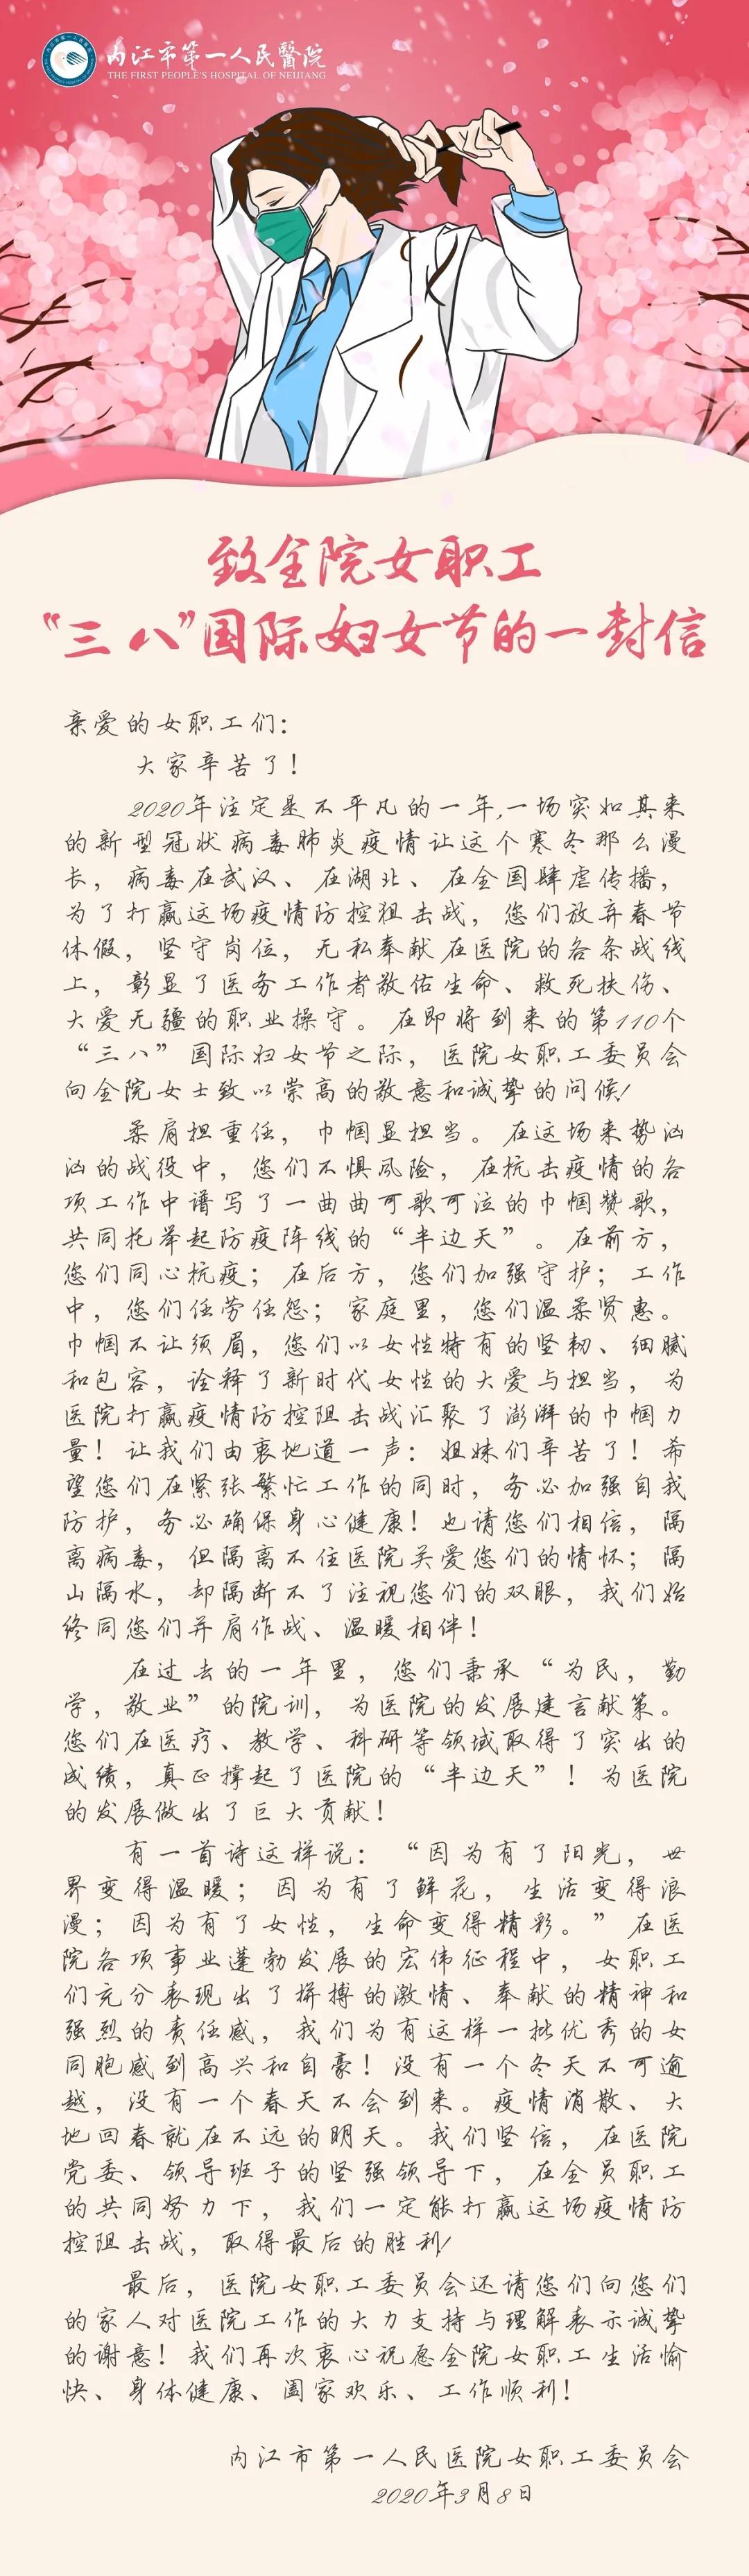 内江市第一人民醫院
THE FIRST PEOPLE'S HOSPITAL OF NEIJIANG
致全院女职工
“三八”国际妇女节的一封信
亲爱的女职工们：
大家辛苦了！
2020年注定是不平凡的一年，一场突如其来
的新型冠状病毒肺炎疫情让这个寒冬那么漫
长，病毒在武汉、在湖北、在全国肆虐传播，
为了打赢这场疫情防控狙击战，您们放弃春节
休假，坚守岗位，无私奉献在医院的各条战线
上，彰显了医务工作者敬佑生命、救死扶伤、
大爱无疆的职业操守。在即将到来的第110个
“三八”国际妇女节之际，医院女职工委员会
向全院女士致以崇高的敬意和诚挚的问候！
柔肩担重任，巾帼显担当。在这场来势汹
汹的战役中，您们不惧风险，在抗击疫情的各
项工作中谱写了一曲曲可歌可泣的巾帼赞歌，
共同托举起防疫阵线的“半边天”。在前方，
您们同心抗疫；在后方，您们加强守护；工作
中，您们任劳任怨；家庭里，您们温柔贤惠。
巾帼不让须眉，您们以女性特有的坚韧、细腻
和包容，诠释了新时代女性的大爱与担当，为
医院打赢疫情防控阻击战汇聚了澎湃的巾帼力
量！让我们由衷地道一声：姐妹们辛苦了！希
望您们在紧张繁忙工作的同时，务必加强自我
防护，务必确保身心健康！也请您们相信，隔
离病毒，但隔离不住医院关爱您们的情怀；隔
山隔水，却隔断不了注视您们的双眼，我们始
终同您们并肩作战、温暖相伴！
在过去的一年里，您们秉承“为民，勤
学，敬业”的院训，为医院的发展建言献策。
您们在医疗、教学、科研等领域取得了突出的
成绩，真正撑起了医院的“半边天”！为医院
的发展做出了巨大贡献！
有一首诗这样说：“因为有了阳光，世
界变得温暖；因为有了鲜花，生活变得浪
漫；因为有了女性，生命变得精彩。”在医
院各项事业蓬勃发展的宏伟征程中，女职工
们充分表现出了拼搏的激情、奉献的精神和
强烈的责任感，我们为有这样一批优秀的女
同胞感到高兴和自豪！没有一个冬天不可逾
越，没有一个春天不会到来。疫情消散、大
地回春就在不远的明天。我们坚信，在医院
党委、领导班子的坚强领导下，在全员职工
的共同努力下，我们一定能打赢这场疫情防
控阻击战，取得最后的胜利！
最后，医院女职工委员会还请您们向您们
的家人对医院工作的大力支持与理解表示诚挚
的谢意！我们再次衷心祝愿全院女职工生活愉
快、身体健康、阖家欢乐、工作顺利！
内江市第一人民医院女职工委员会
2020年3月8日